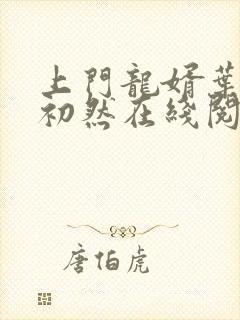 上門龍婿葉
初然在綫閱
唐伯虎